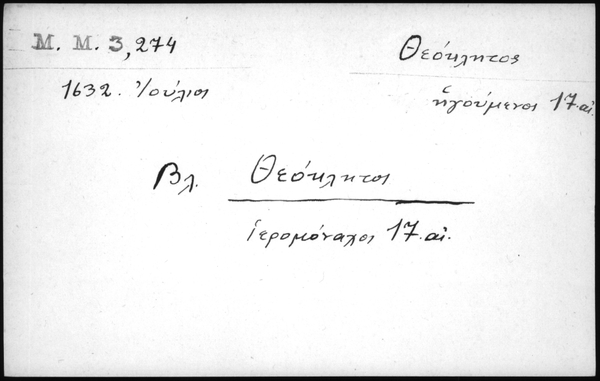 M. M. 3,274
Θεόκλητος
1632. Ἰούλιος
ἡγούμενος 17. αἰ.
Βλ. Θεόκλητος
ἱερομόναχος 17. αἰ.